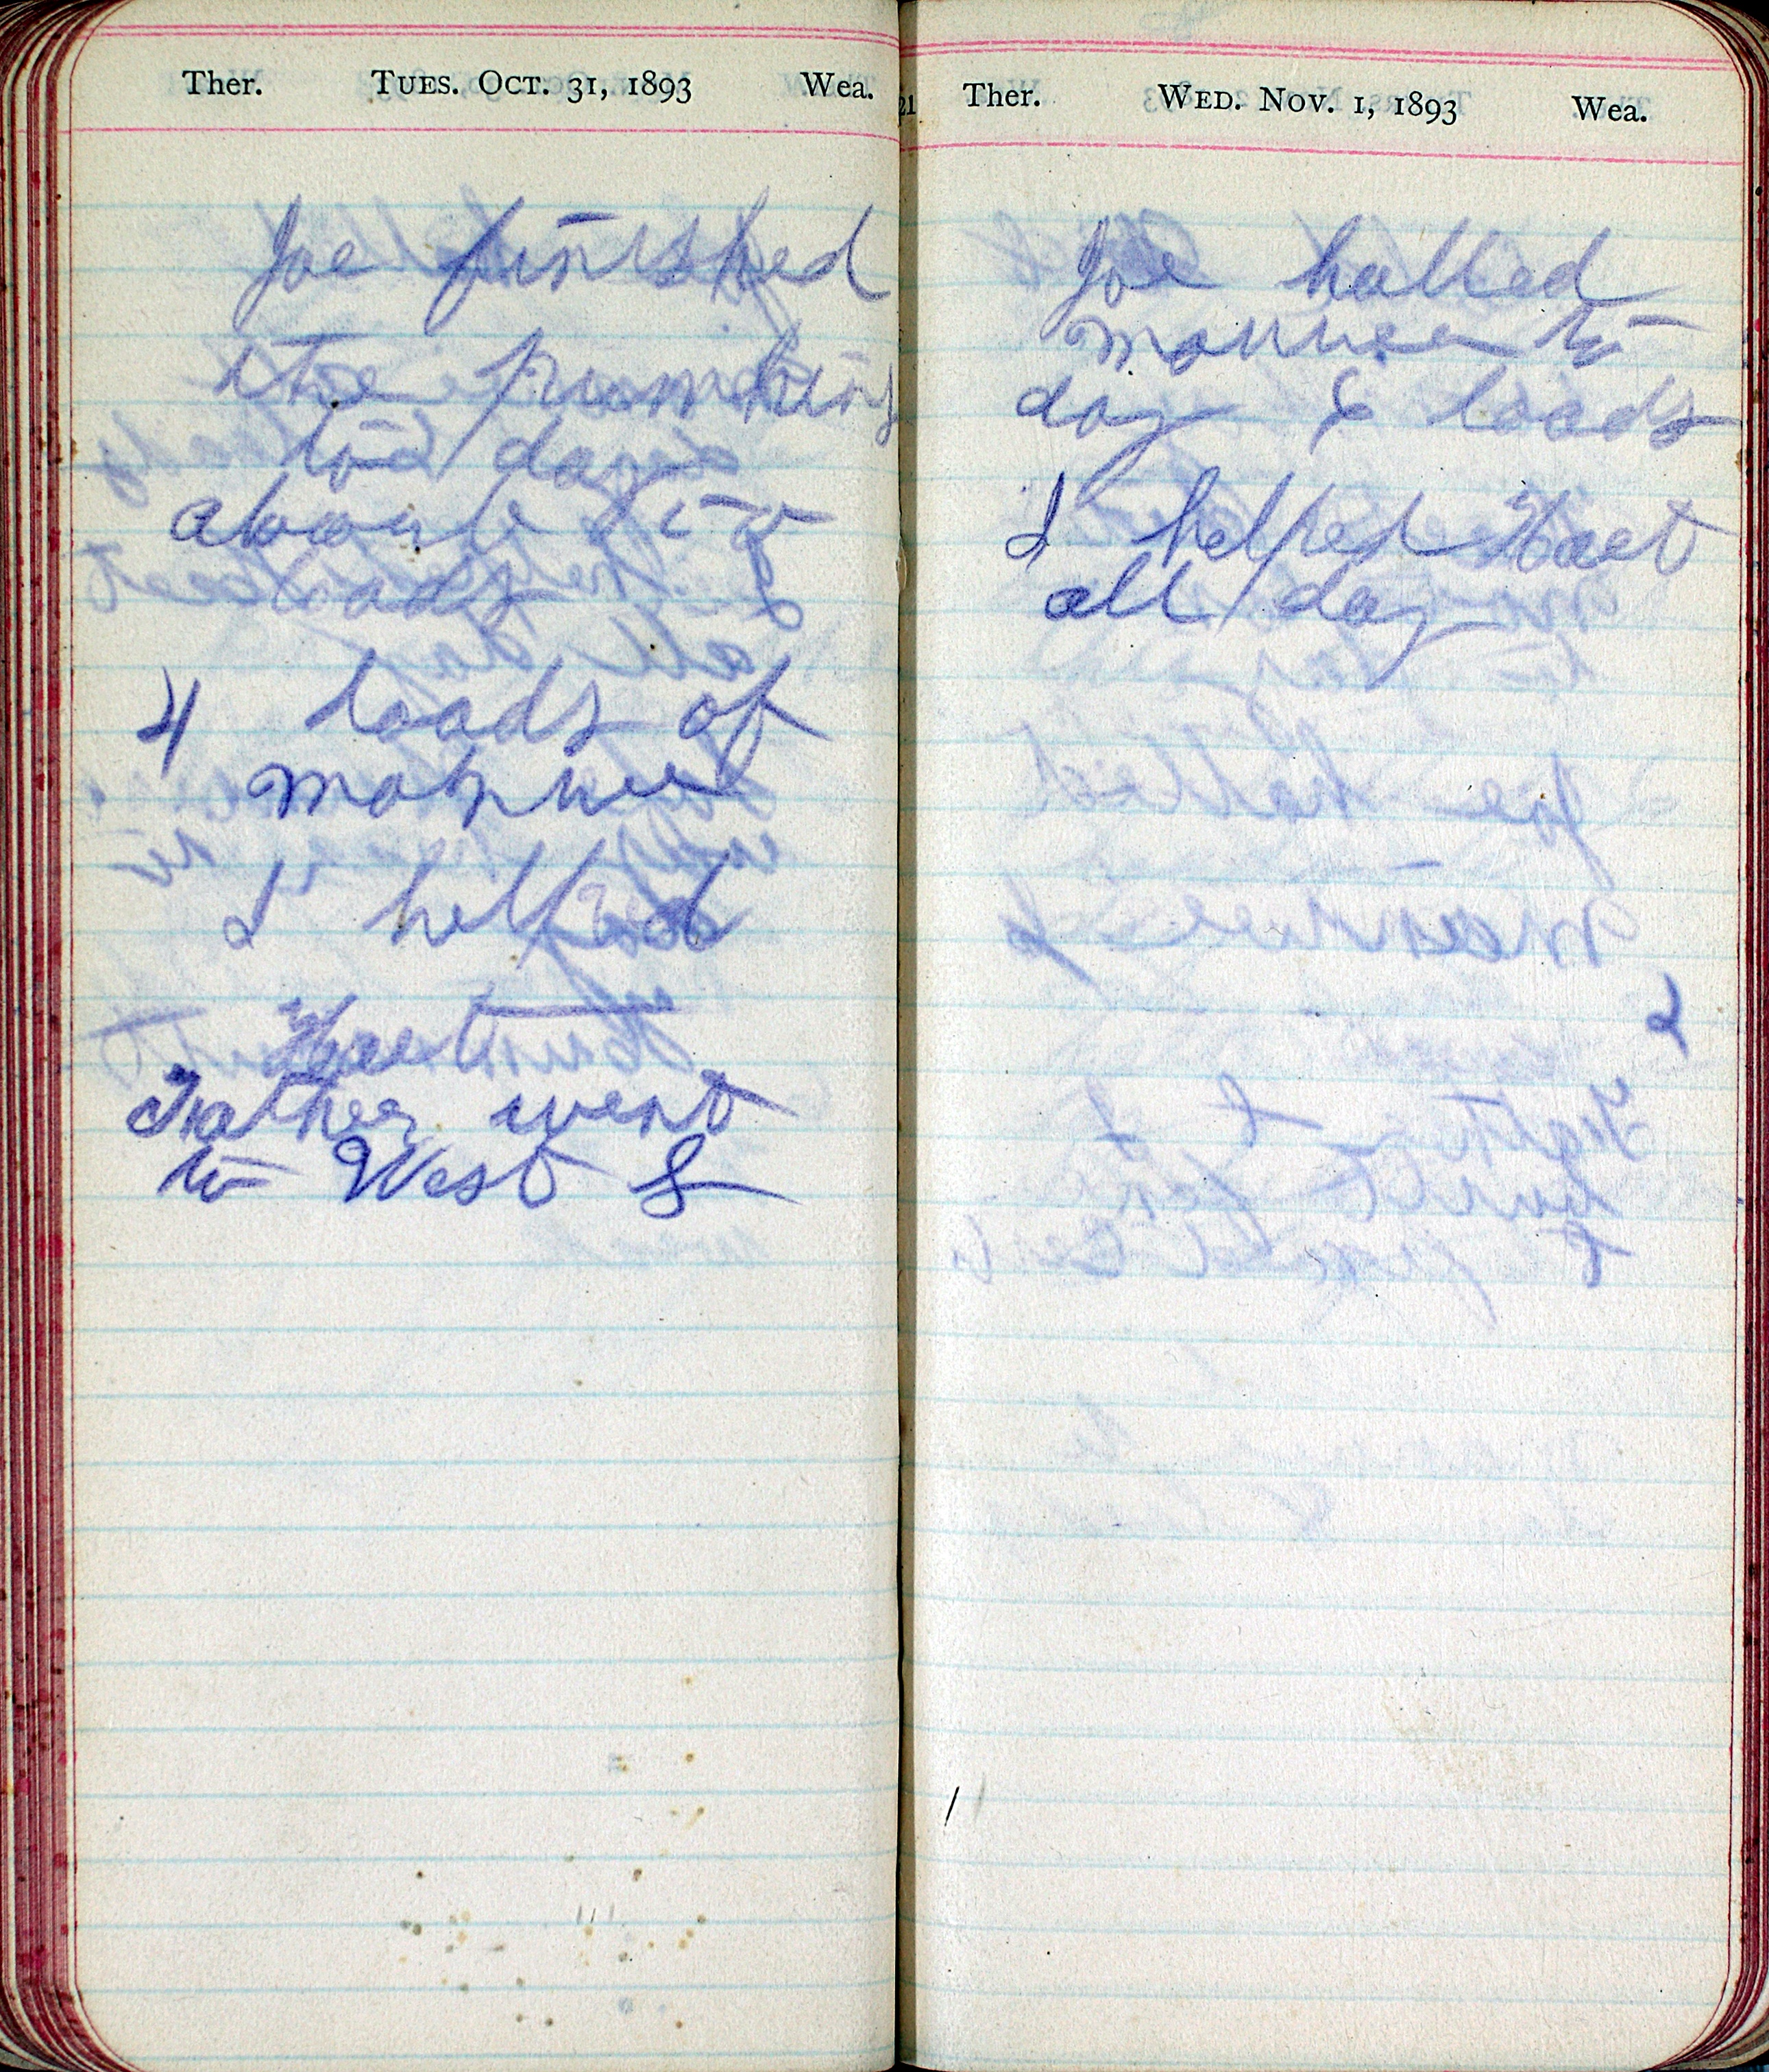 Ther. TUES. OCT. 31, 1893 Wea.
Joe finished
the pumpkins
to day
about
loads
4 loads of
manure
I helped
Hoet
Father went
to West S
21
Ther. WED. NOV. 1, 1893 Wea.
Joe halled
manuer to
day 6 loads
I helped Hoet
all day